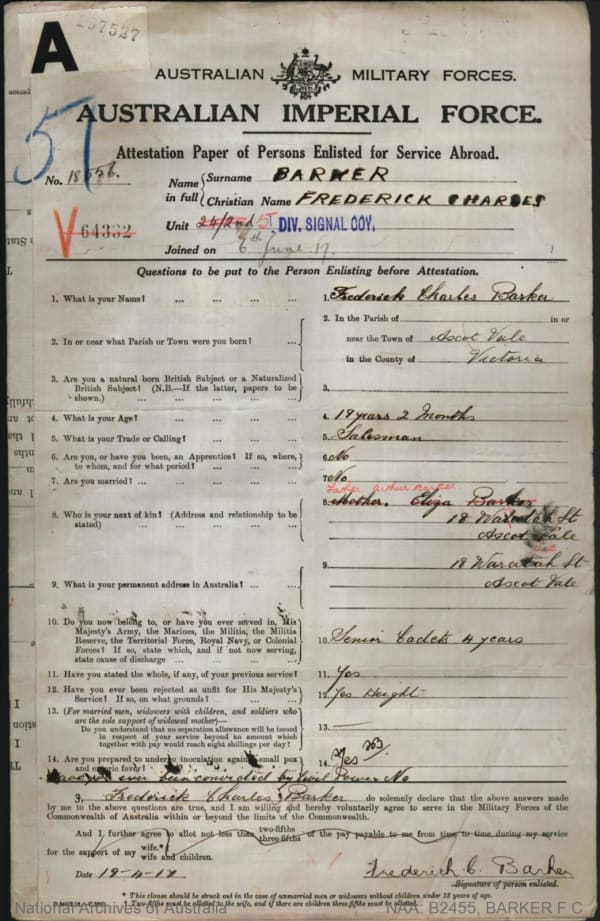 A
237527
AUSTRALIAN MILITARY FORCES.
AUSTRALIAN IMPERIAL FORCE.
57
Attestation Paper of Persons Enlisted for Service Abroad.
No. 18556.
Name in full
Surname BARKER
Christian Name FREDERICK CHARLES
V 64332
Unit 24/2nd DIV. SIGNAL COY.
Joined on 6th June 17.
Questions to be put to the Person Enlisting before Attestation.
1. What is your Name? ... ... ... ... 1. Frederick Charles Barker
2. In or near what Parish or Town were you born? ...
2. In the Parish of in or
near the Town of Ascot Vale
in the County of Victoria
3. Are you a natural born British Subject or a Naturalized
British Subject? (N.B.—If the latter, papers to be
shown.) ... ... ... ... 3.
4. What is your Age? ... ... ... ... 4. 18 years 2 Months
5. What is your Trade or Calling? ... ... ... 5. Salesman
6. Are you, or have you been, an Apprentice? If so, where,
to whom, and for what period? ... ... ... 6. No
7. Are you married? ... ... ... ... 7. No
Father Arthur Barker
8. Who is your next of kin? (Address and relationship to be
stated) ... ... ... ...
8. Mother. Eliza Barker
18 Waratah St
Ascot Vale
9. What is your permanent address in Australia? ... ...
9. 18 Waratah St
Ascot Vale
10. Do you now belong to, or have you ever served in, His
Majesty's Army, the Marines, the Militia, the Militia
Reserve, the Territorial Force, Royal Navy, or Colonial
Forces? If so, state which, and if not now serving,
state cause of discharge ... ... ... 10. Senior Cadets 4 years
11. Have you stated the whole, if any, of your previous service? 11. Yes
12. Have you ever been rejected as unfit for His Majesty's
Service? If so, on what grounds? ... ... 12. Yes Height
13. (For married men, widowers with children, and soldiers who
are the sole support of widowed mother)—
Do you understand that no separation allowance will be issued
in respect of your service beyond an amount which
together with pay would reach eight shillings per day? 13. —
14. Are you prepared to undergo inoculation against small pox
and enteric fever? 14. Yes
ever been convicted by Civil Power No
I, Frederick Charles Barker do solemnly declare that the above answers made
by me to the above questions are true, and I am willing and hereby voluntarily agree to serve in the Military Forces of the
Commonwealth of Australia within or beyond the limits of the Commonwealth.
And I further agree to allot not less than two-fifths three-fifths of the pay payable to me from time to time during my service
for the support of my wife.* wife and children.
Date
Frederick C. Barker
Signature of person enlisted.
* This clause should be struck out in the case of unmarried men or widowers without children under 18 years of age.
† Two-fifths must be allotted to the wife, and if there are children three-fifths must be allotted.
National Archives of Australia
NAA: B2455, BARKER F C